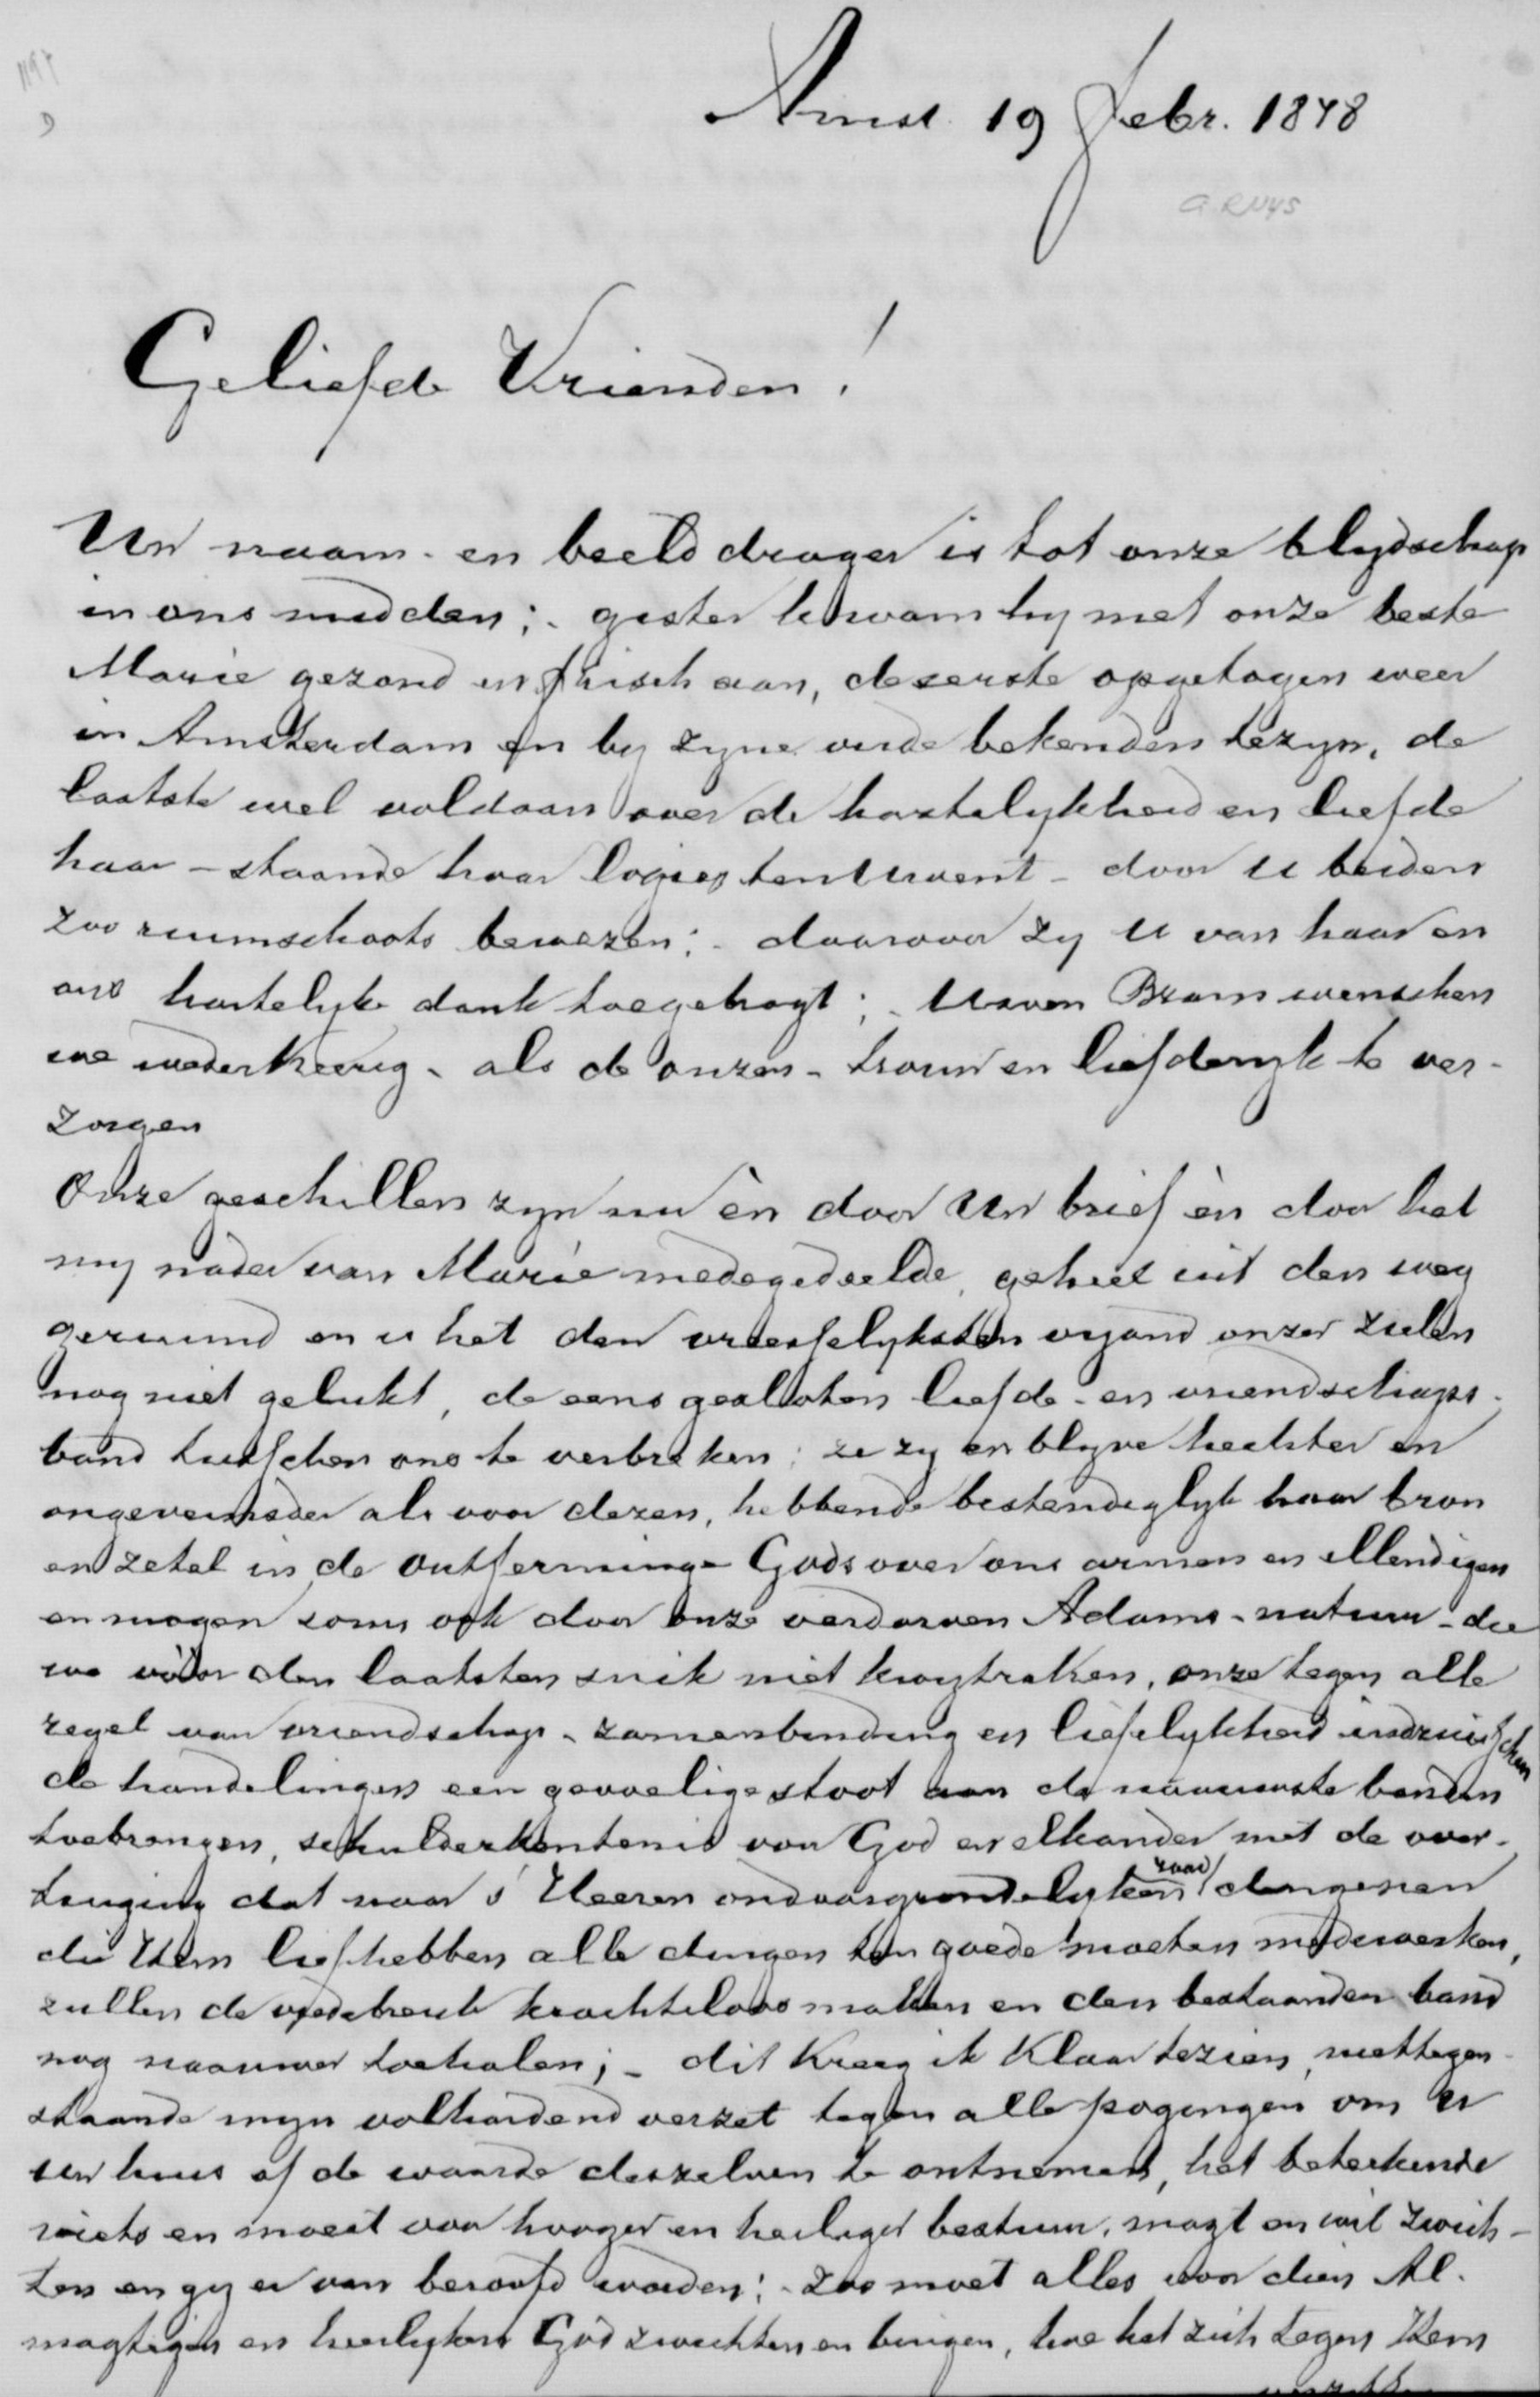 Amst. 19 Febr. 1848
G RUYS
Geliefde Vrienden!
Uw naam- en beelddrager is tot onze blydschap
in ons midden; - gister kwam hy met onze beste
Marie gezond en frisch aan, de eerste opgetogen weer
in Amsterdam en by zyne oude bekenden te zyn, de
laatste wel voldaan over de hartelykheid en liefde
haar - staande haar logies ten Uwent - door U beiden
zoo ruimschoots bewezen; - daarvoor zy U van haar en
ons hartelyk dank toegebragt; - Uwen Bram wenschen
we wederkeerig - als de onzen - trouw en liefderyk te ver-
zorgen
Onze geschillen zyn nu èn door Uw brief èn door het
my nader van Marie medegedeelde, geheel uit den weg
geruimd en is het den vreesselyksten vyand onzer zielen
nog niet gelukt, de eens gesloten liefde- en vriendschaps-
band tusschen ons te verbreken; ze zy en blyve hechter en
ongeveinsder als voor dezen, hebbende bestendiglyk haar bron
en zetel in de Ontferminge Gods over ons armen en ellendigen
en mogen soms ook door onze verdorven Adams-natuur - die
we vóór den laatsten snik niet kwytraken, onze tegen alle
regel van vriendschap - zamenbinding en liefelykheid indruisschen
de handelingen een gevoelige stoot aan de naauwste banden
toebrengen, schulderkentenis voor God en elkander met de over-
tuiging dat naar s' Heeren ondoorgrondelyken raad dengenen
die Hem liefhebben alle dingen ten goede moeten medewerken,
zullen de vredebreuk krachteloos maken en den bestaanden band
nog naauwer toehalen; - dit kreeg ik klaar te zien, niettegen-
staande myn volhardend verzet tegen alle pogingen om U
Uw huis of de waarde deszelven te ontnemen, het beteekende
niets en moest voor hooger en heiliger bestuur, magt en wil zwich-
ten en gy er van beroofd worden; - zoo moet alles voor dien Al-
magtigen en heerlyken God zwichten en buigen, hoe het zich tegen Hem